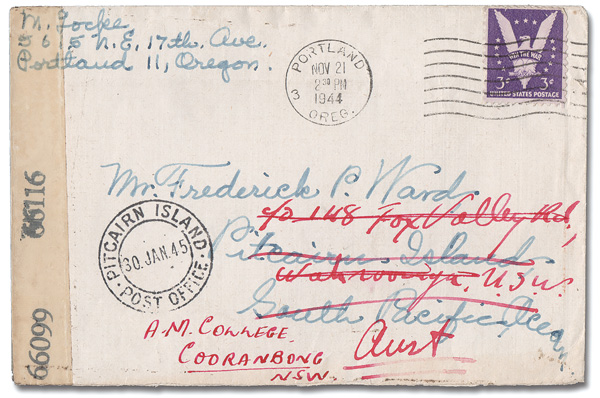 M. Locke
5615 N.E. 17th. Ave.
Portland 11, Oregon.
PORTLAND
NOV 21
2 30 PM
1944
3
OREG.
WIN THE WAR
3¢ 3¢
UNITED STATES POSTAGE
66116
66099
Mr. Frederick P. Ward
c/o 148 Fox Valley Rd,
Pitcairn Island
Wahroonga, N.S.W.
South Pacific Ocean
Aust
PITCAIRN ISLAND
30. JAN. 45
POST OFFICE
A.M. COLLEGE
COORANBONG
NSW.